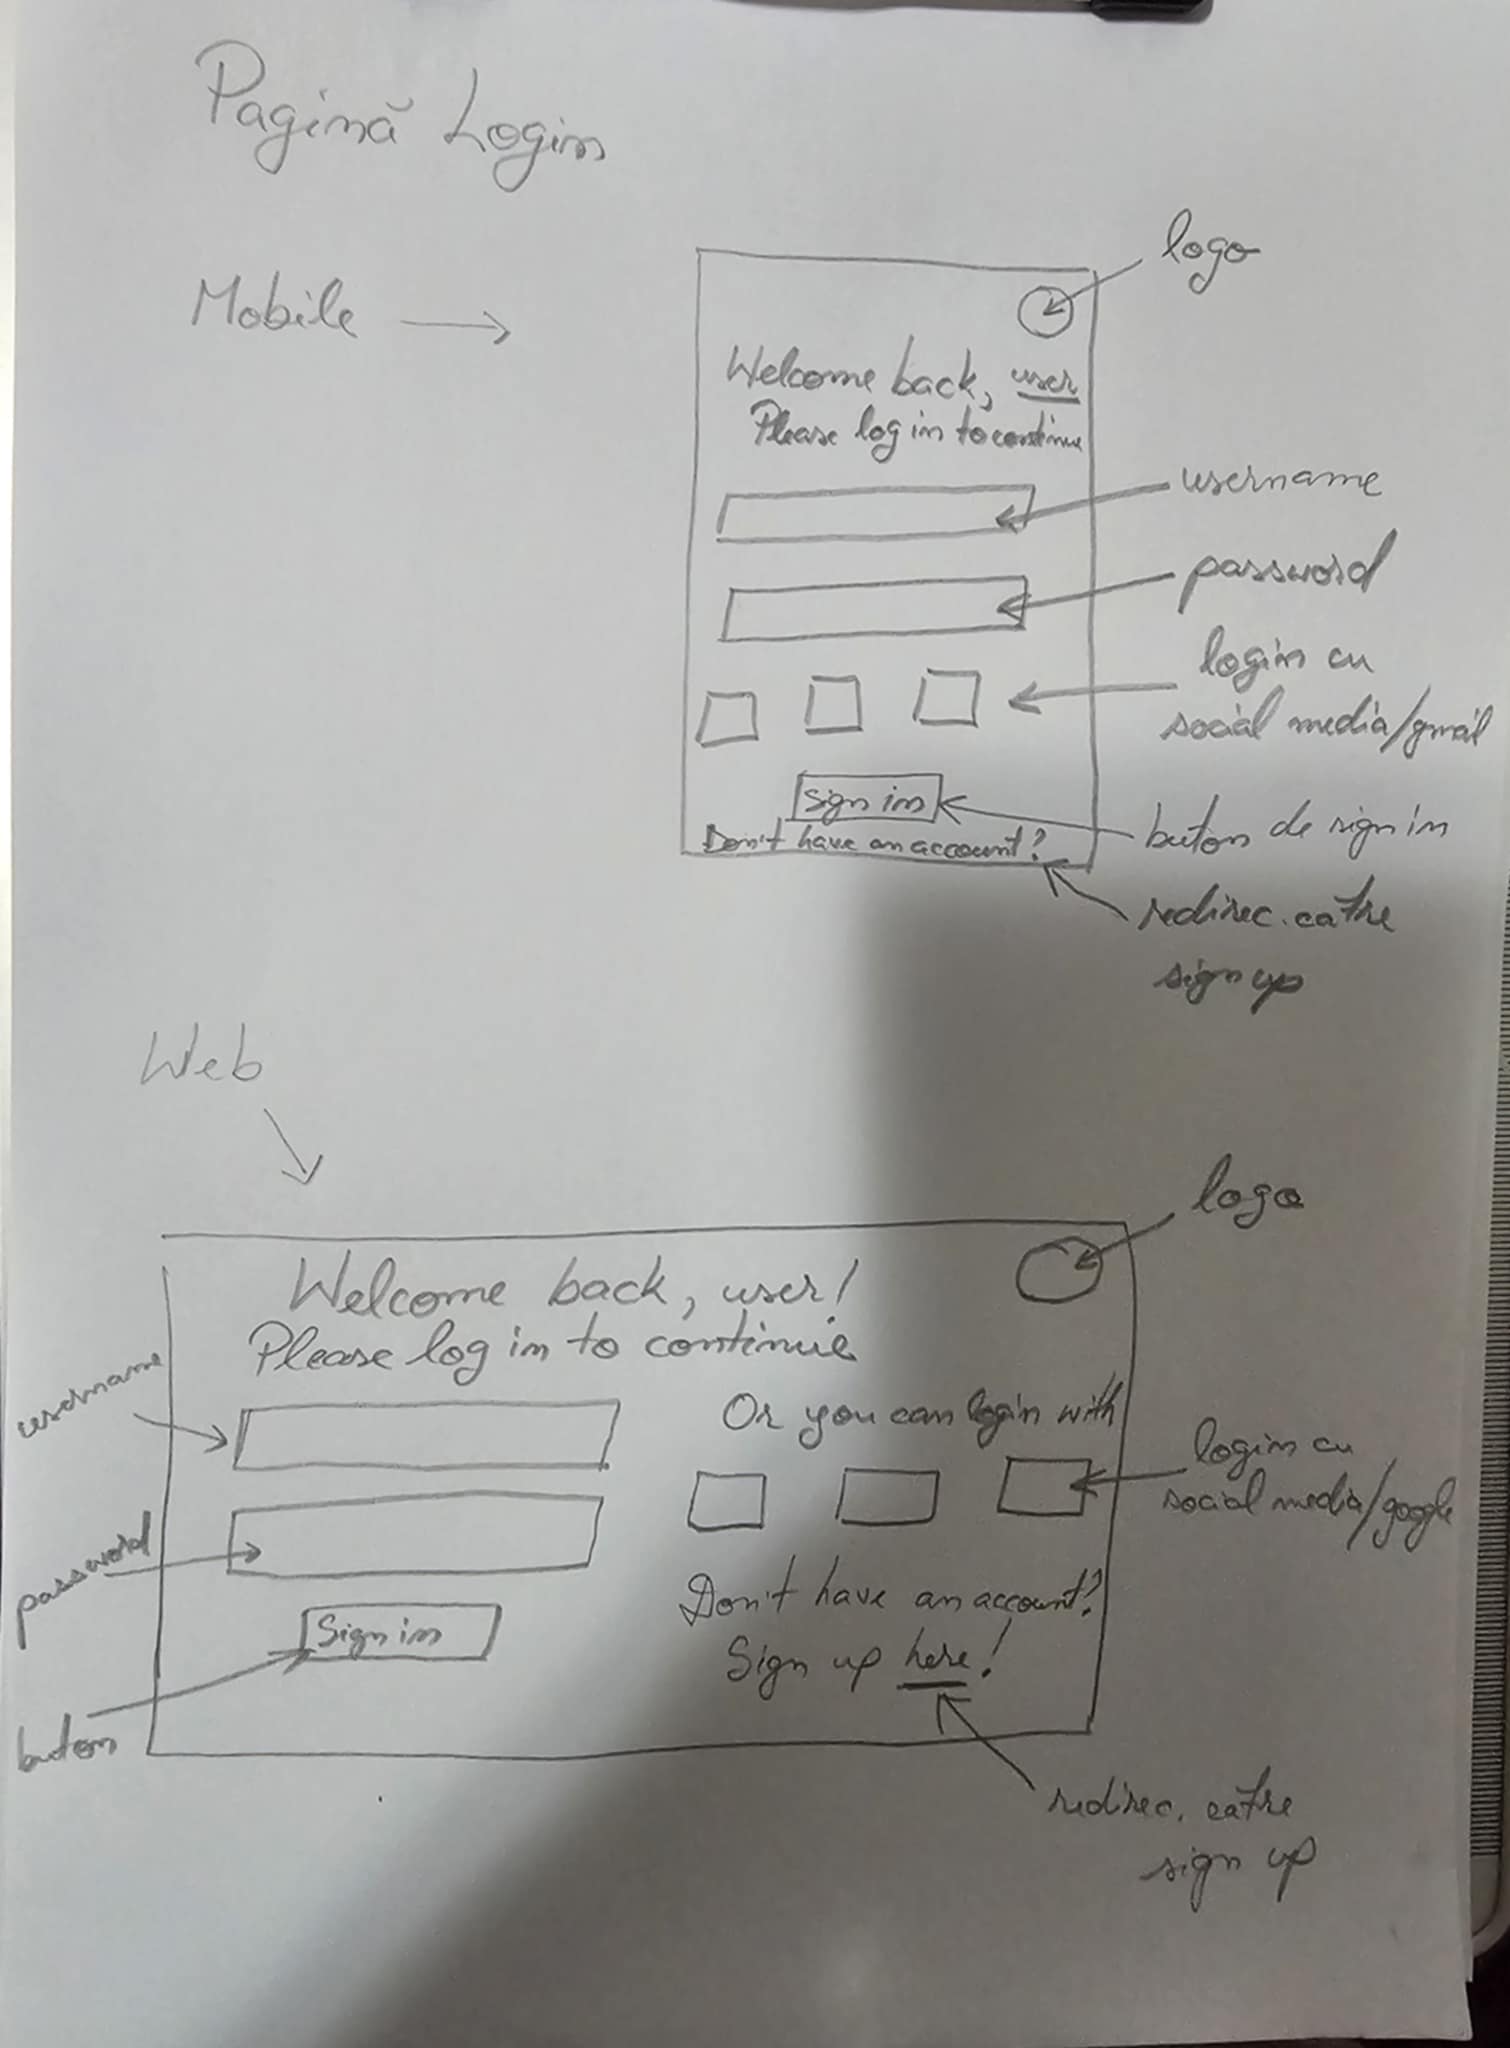 Pagină Login
Mobile
logo
Welcome back, user
Please log in to continue
username
password
login cu
social media/gmail
Sign in
buton de sign in
Don't have an account?
redirec. catre
sign up
Web
logo
Welcome back, user!
Please log in to continue
username
Or you can login with
login cu
social media/google
password
Don't have an account?
Sign in
Sign up here!
buton
redirec. catre
sign up